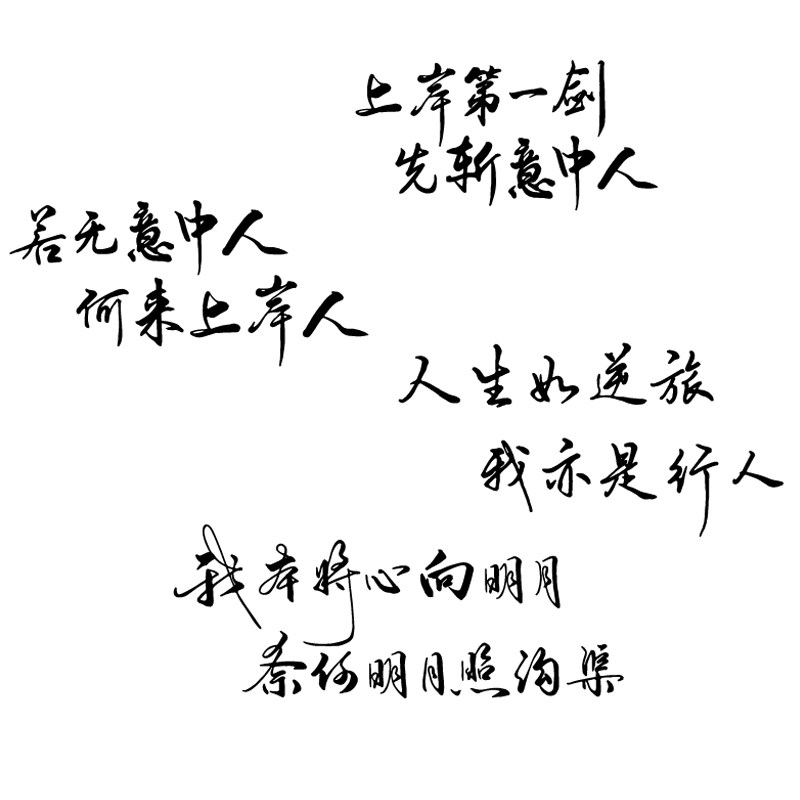 上岸第一剑
先斩意中人
若无意中人
何来上岸人
人生如逆旅
我亦是行人
我本将心向明月
奈何明月照沟渠